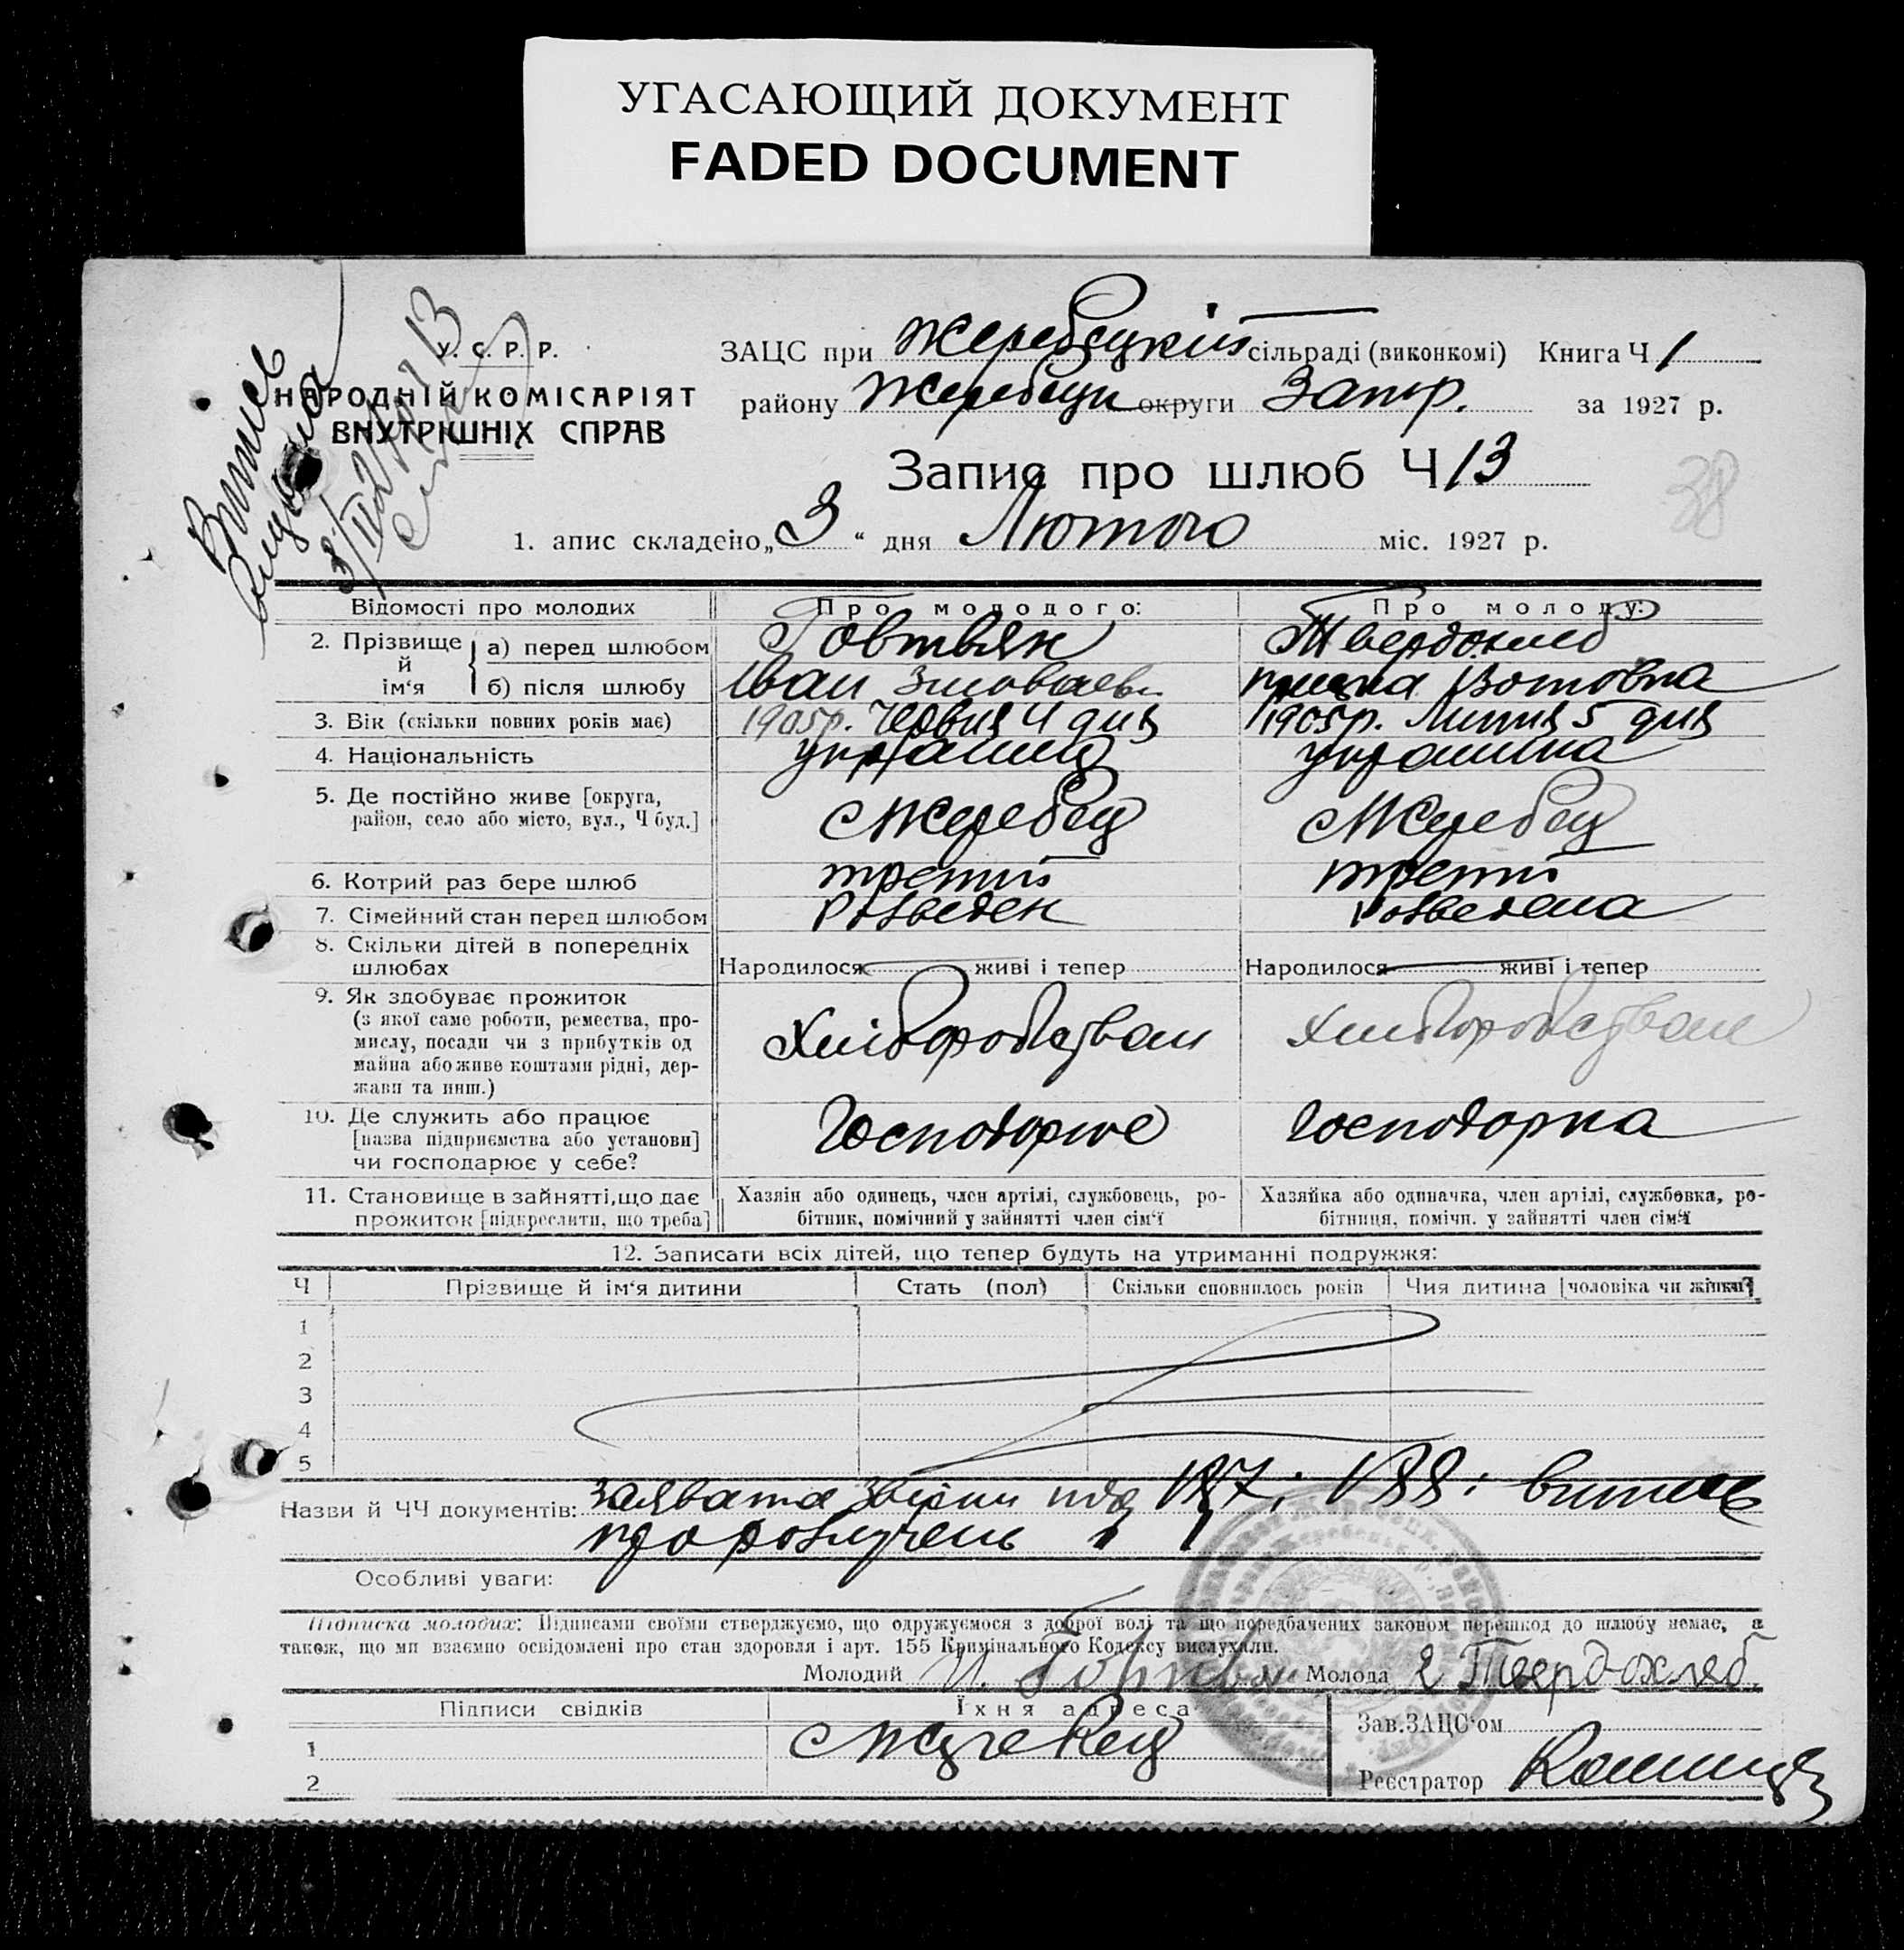 УГАСАЮЩИЙ ДОКУМЕНТ
FADED DOCUMENT
У. С. Р. Р.
НАРОДНІЙ КОМІСАРІЯТ
ВНУТРІШНІХ СПРАВ
ЗАЦС при Жеребецкій сільраді (виконкомі) Книга Ч 1
району Жеребецк округи Запор. за 1927 р.
Запис про шлюб Ч 13
38
1. апис складено „3“ дня Лютого міс. 1927 р.
Відомості про молодих Про молодого: Про молоду:
2. Прізвище й ім‘я а) перед шлюбом Говтвян Твердохлиб
б) після шлюбу Іван
3. Вік (скільки повних років має) 1905р. Червня 4 дня 1905р. Липня 5 дня
4. Національність украинец украинка
5. Де постійно живе [округа, район, село або місто, вул., Ч буд.] с Жеребец с Жеребец
6. Котрий раз бере шлюб третий третий
7. Сімейний стан перед шлюбом Розведен розведена
8. Скільки дітей в попередніх шлюбах Народилося живі і тепер Народилося живі і тепер
9. Як здобуває прожиток
(з якої саме роботи, ремества, про-
мислу, посади чи з прибутків од
майна або живе коштами рідні, дер-
жави та инш.)
10. Де служить або працює
[назва підприємства або установи]
чи господарює у себе? Господорює господорка
11. Становище в зайнятті, що дає
прожиток [підкреслити, що треба]
Хазяін або одинець, член артілі, службовець, ро-
бітник, помічний у зайнятті член сім‘ї
Хазяйка або одиначка, член артілі, службовка, ро-
бітниця, помічн. у зайнятті член сім‘ї
12. Записати всіх дітей, що тепер будуть на утриманні подружжя:
Ч Прізвище й ім‘я дитини Стать (пол) Скільки сповнилось років Чия дитина [чоловіка чи жінки?]
1
2
3
4
5
Назви й ЧЧ документів: 187; 188;
Особливі уваги:
Підписка молодих: Підписами своїми стверджуємо, що одружуємося з доброї волі та що передбачених законом перешкод до шлюбу немає, а
також, що ми взаємно освідомлені про стан здоровля і арт. 155 Кримінального Кодексу вислухали.
Молодий Молода Твердохлеб
Підписи свідків Їхня адреса
Зав. ЗАЦС‘ом
1
2
Реєстратор